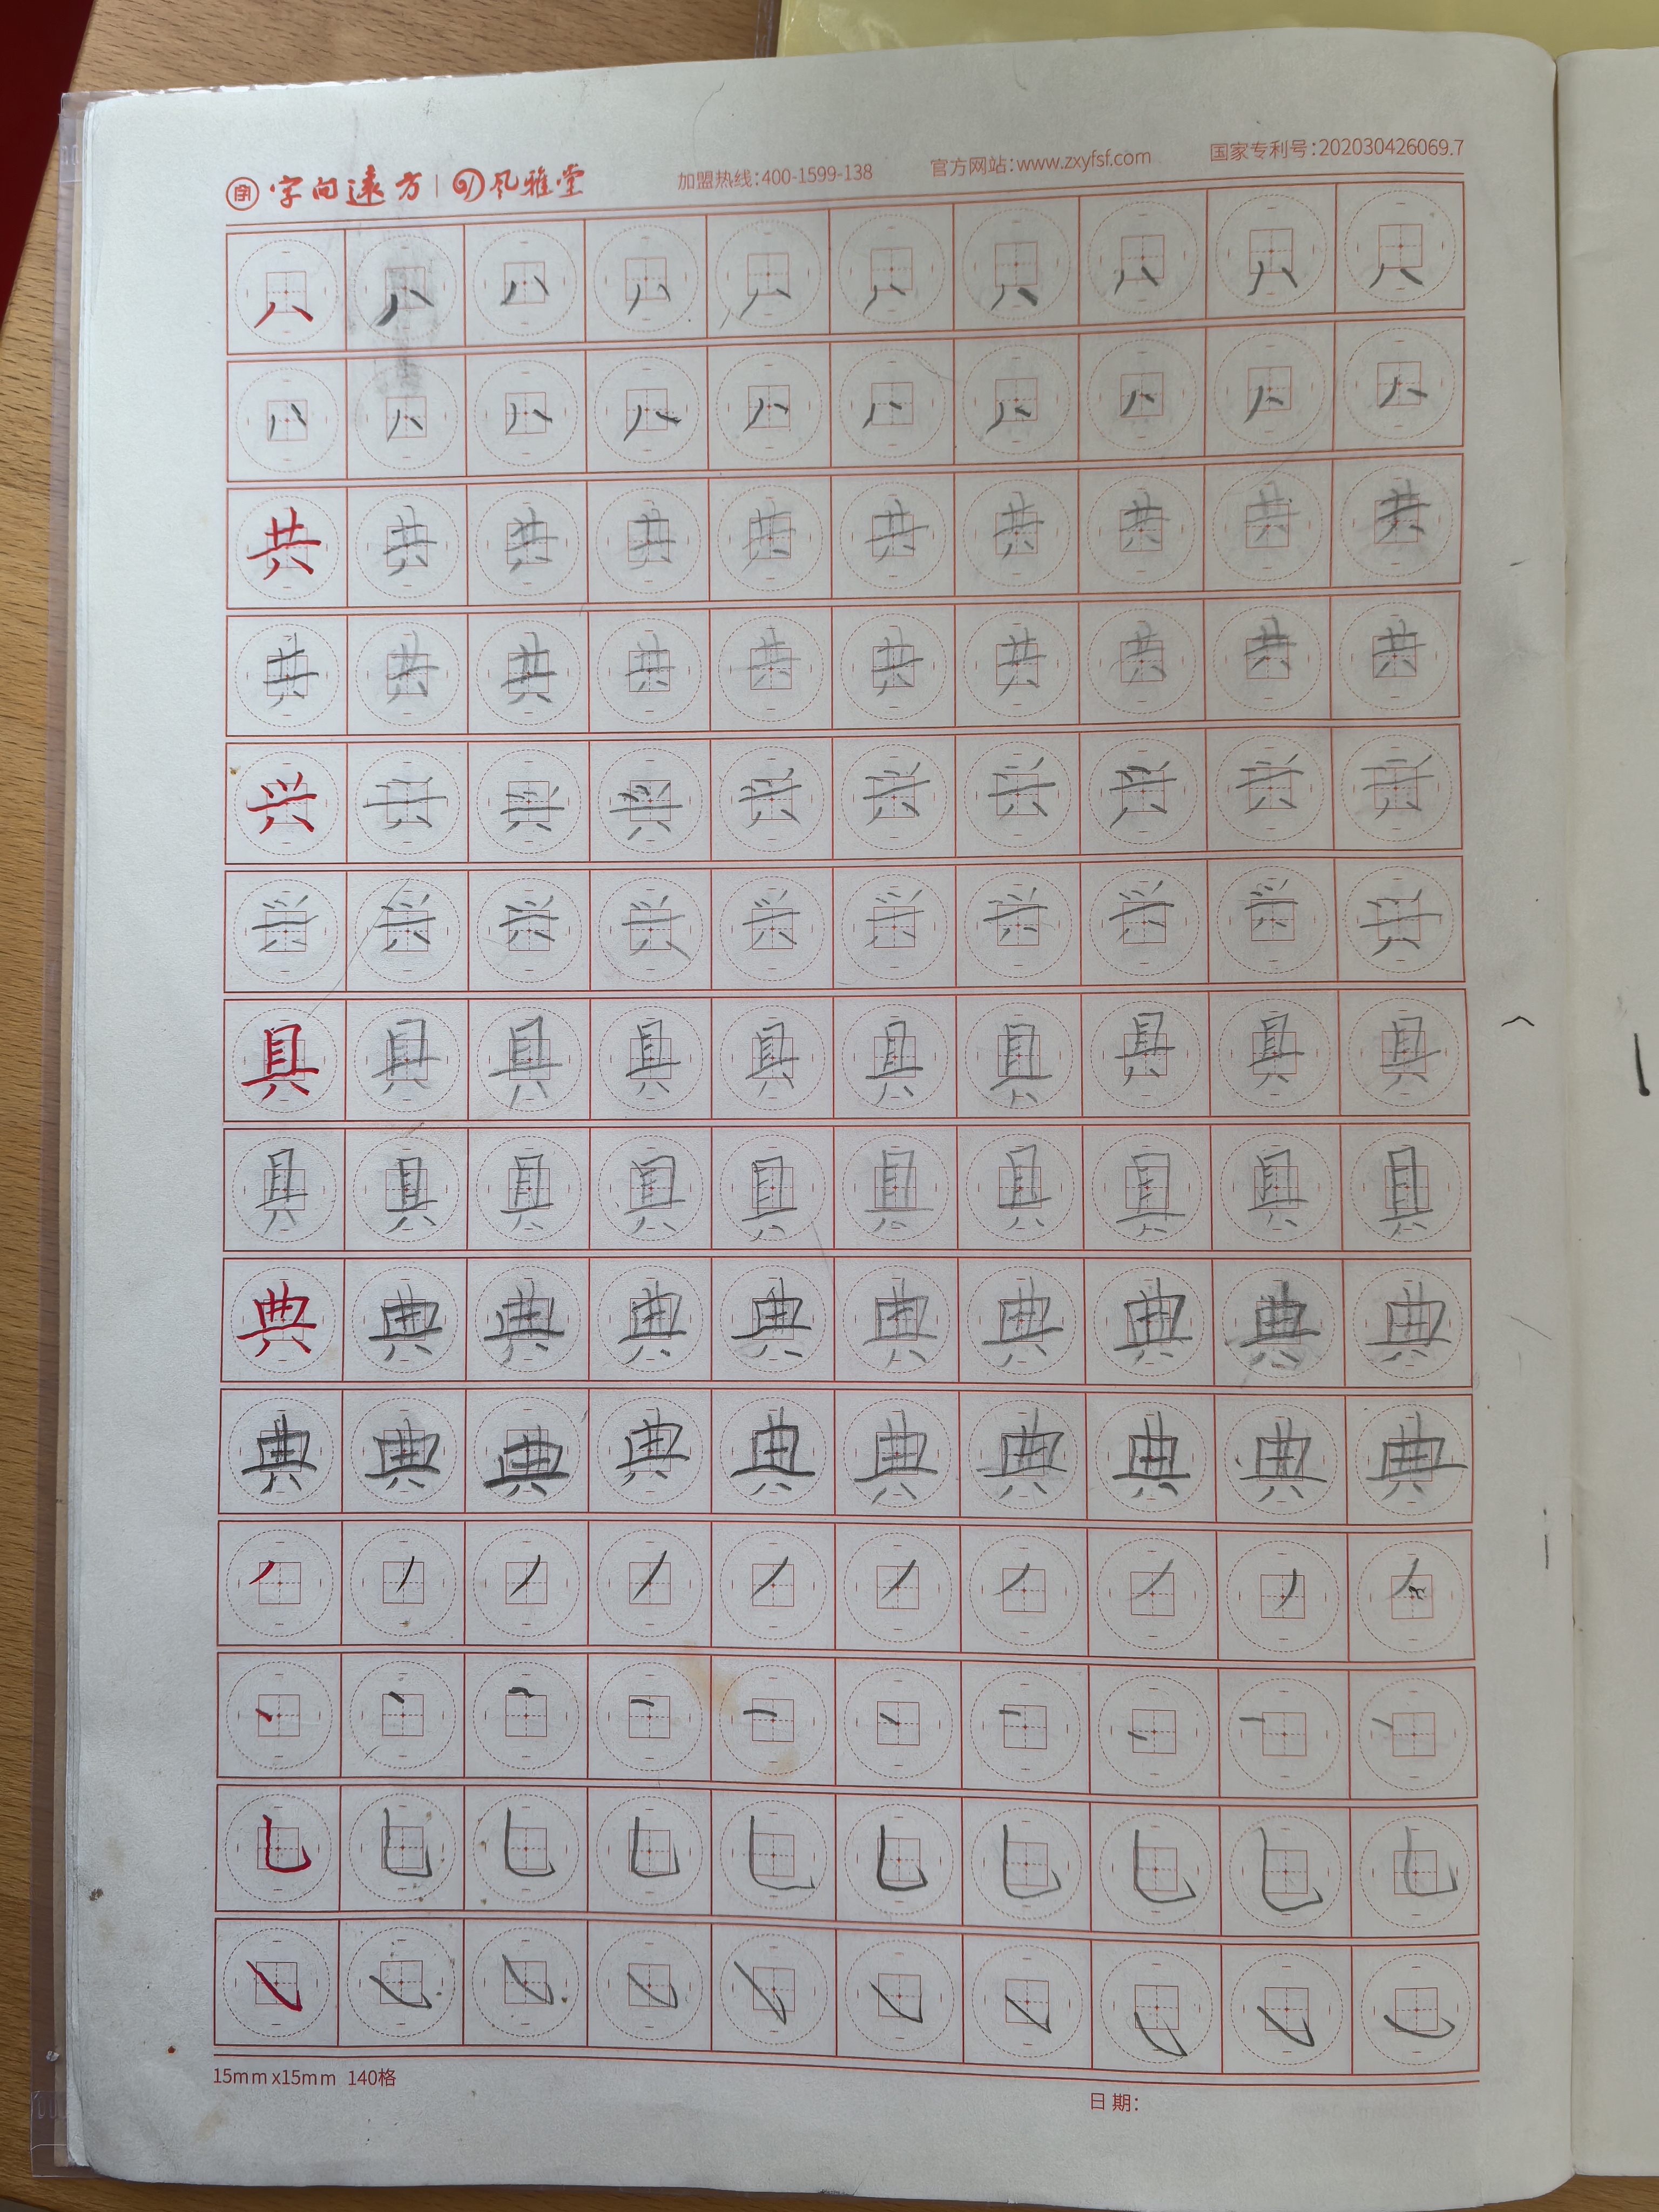 字 字向远方 风雅堂 加盟热线:400-1599-138 官方网站:www.zxyfsf.com 国家专利号:202030426069.7
八 八 八 八 八 八 八 八 八 八
八 八 八 八 八 八 八 八 八 八
共 共 共 共 共 共 共 共 共 共
共 共 共 共 共 共 共 共 共 共
兴 兴 兴 兴 兴 兴 兴 兴 兴 兴
兴 兴 兴 兴 兴 兴 兴 兴 兴 兴
具 具 具 具 具 具 具 具 具 具
具 具 具 具 具 具 具 具 具 具
典 典 典 典 典 典 典 典 典 典
典 典 典 典 典 典 典 典 典 典
丿 丿 丿 丿 丿 丿 丿 丿 丿 丿
丶 丶 丶 丶 丶 丶 丶 丶 丶 丶
乚 乚 乚 乚 乚 乚 乚 乚 乚 乚
㇂ ㇂ ㇂ ㇂ ㇂ ㇂ ㇂ ㇂ ㇂ ㇂
15mm x15mm 140格
日期: